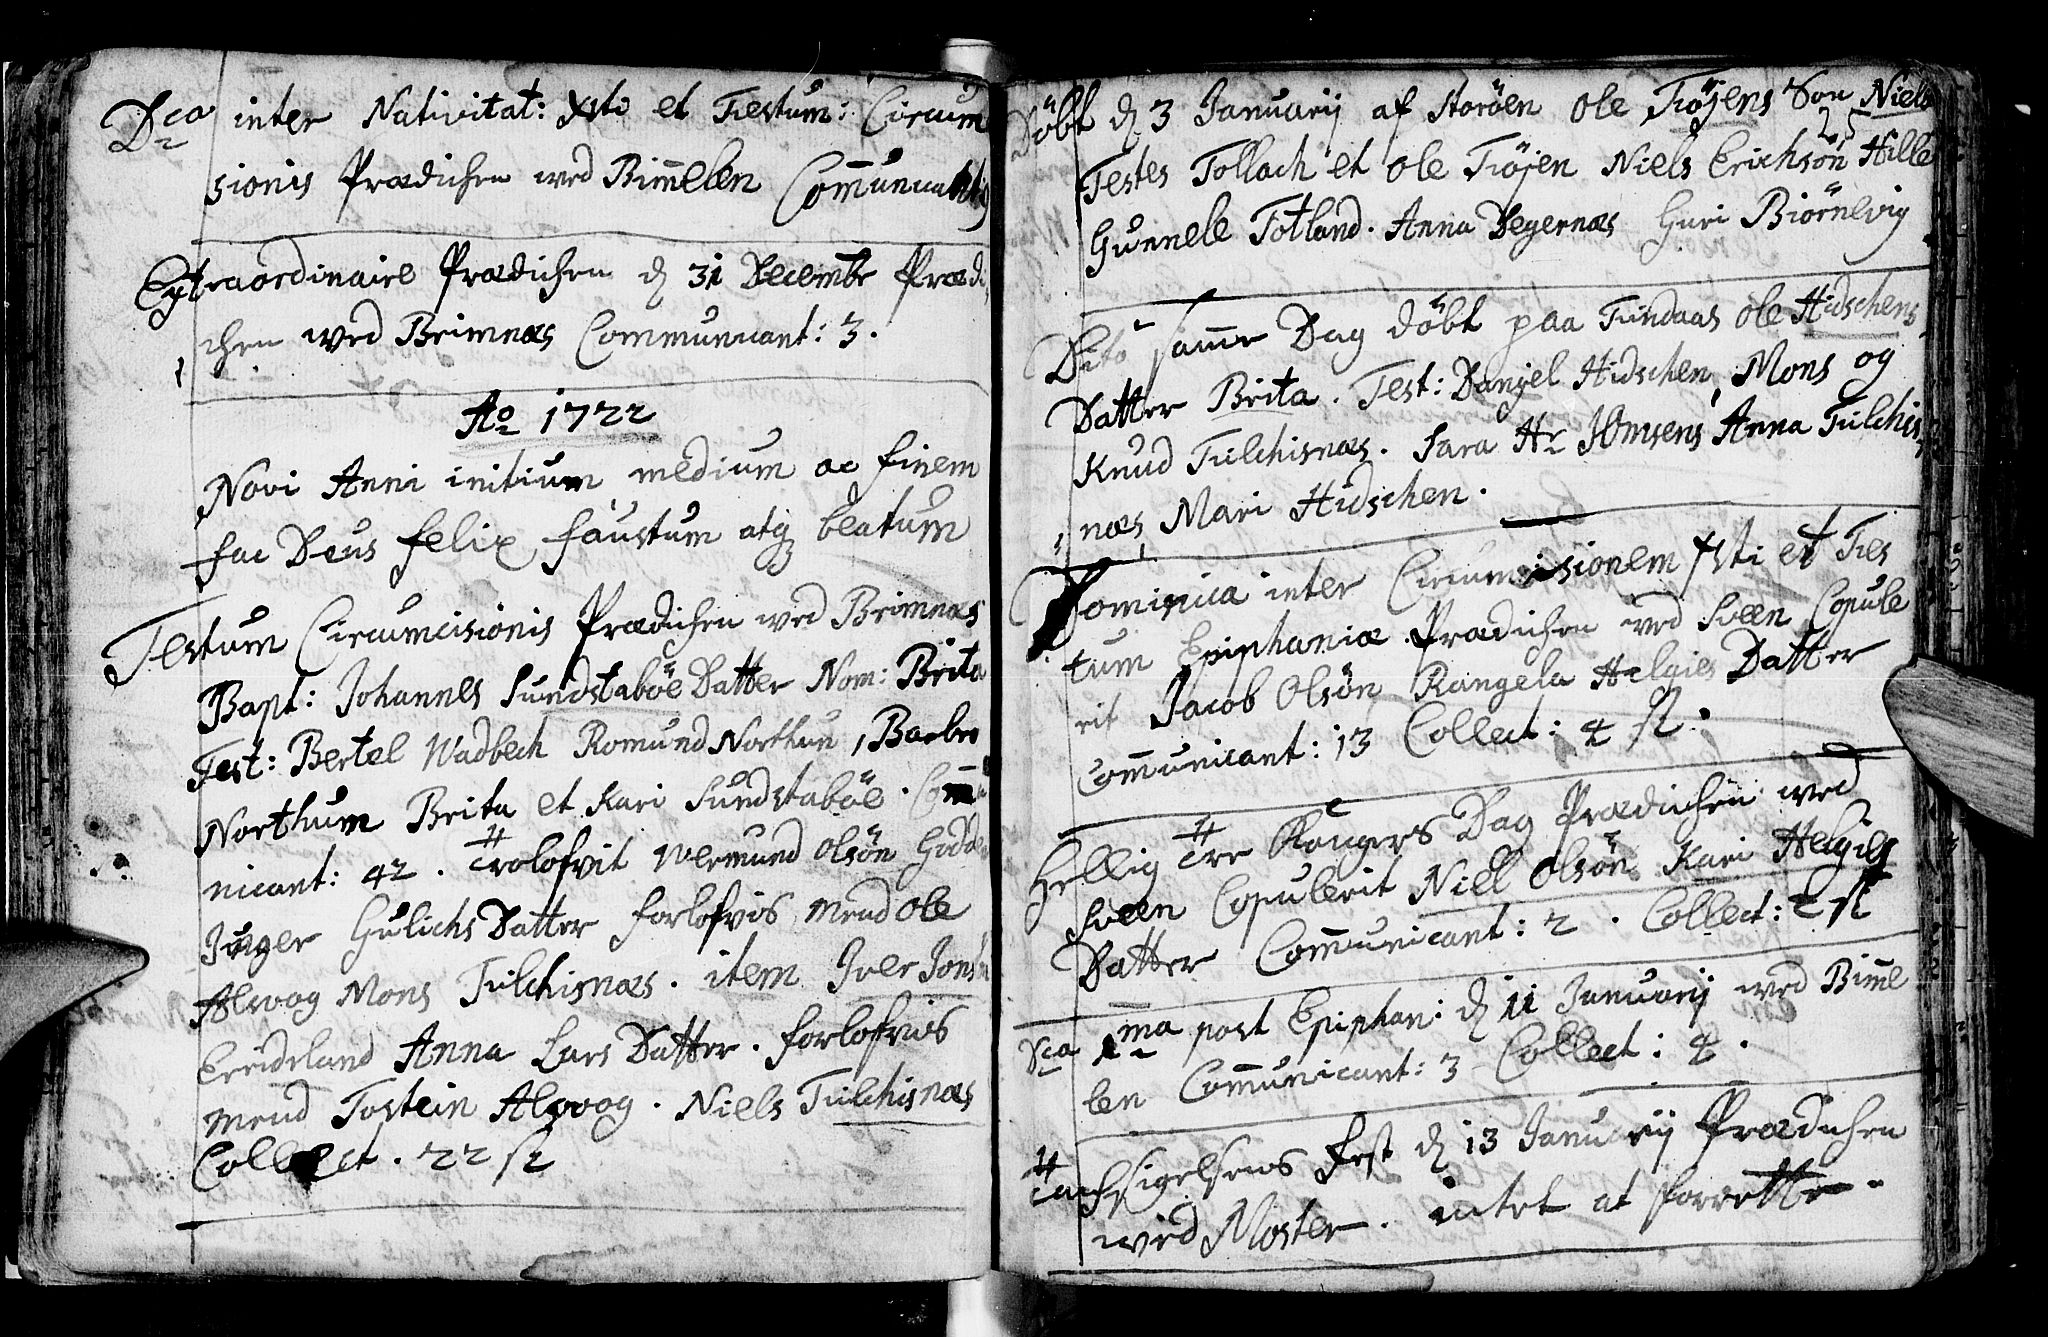 Dca inter Nativitat: Xsti et Festum: Circum
sionis Prædichen wed Bim̄elen Com̄unicant
Extraordinaire Prædichen d 31 Decembr Prædi
chen wed Brimnæs Communicant: 3.
Ao 1722
Novi Anni initium medium ac finem
fac Deus felix, faustum atq beatum
Festum Circumcisionis Prædichen wed Brimnæs
Bapt: Johannes Sundstaböe Datter Nom: Brita
Test: Bertel Wadbech Romund Northun, Barbro
Northum Brita et Kari Sundstaböe. Com̄u
nicant: 42. Trolofvit Wermund Olsön
Inger Gulichs Datter forlofvis mend Ole
Alvvog Mons Filchisnæs. item Iver Jons
Erideland Anna Lars Datter. forlofvis
mend Tostein Alvvog. Niels Filchisnæs
Collect. 22 s
Döbt d 3 Januarij af Storöen Ole Fiöjens Son Niels
25
Testes Tollach et Ole Fiöjen Niels Erichsön Hille
Gunnele Totland. Anna Degernæs Guri Biörnevig
Dito samme Dag döbt paa Findaas Ole Hidschens
Datter Brita. Test: Danjel Hidschen, Mons og
Knud Filchisnæs. Sara Hr Jensens Anna Filchis
næs, Mari Hidschen.
Dominica inter Circumcisionem Xsti et Fes
tum Epiphaniæ Prædichen wed Sveen Copule
rit Jacob Olsön Rangela Helgies Datter
Com̄unicant: 13 Collect: 4 s.
Hellig Tre Kongers Dag Prædichen wed
Sveen Copulerit Niels Olsön Kari Helgies
Datter Com̄unicant: 2. Collect: 2 s
Dca 1ma post Epiphan: d 11 Januarij wed Bim̄e
len Com̄unicant: 3 Collect: 4.
Tachsigelsens Fest d 13 Januarij Prædichen
wed Moster. intet at forrette.